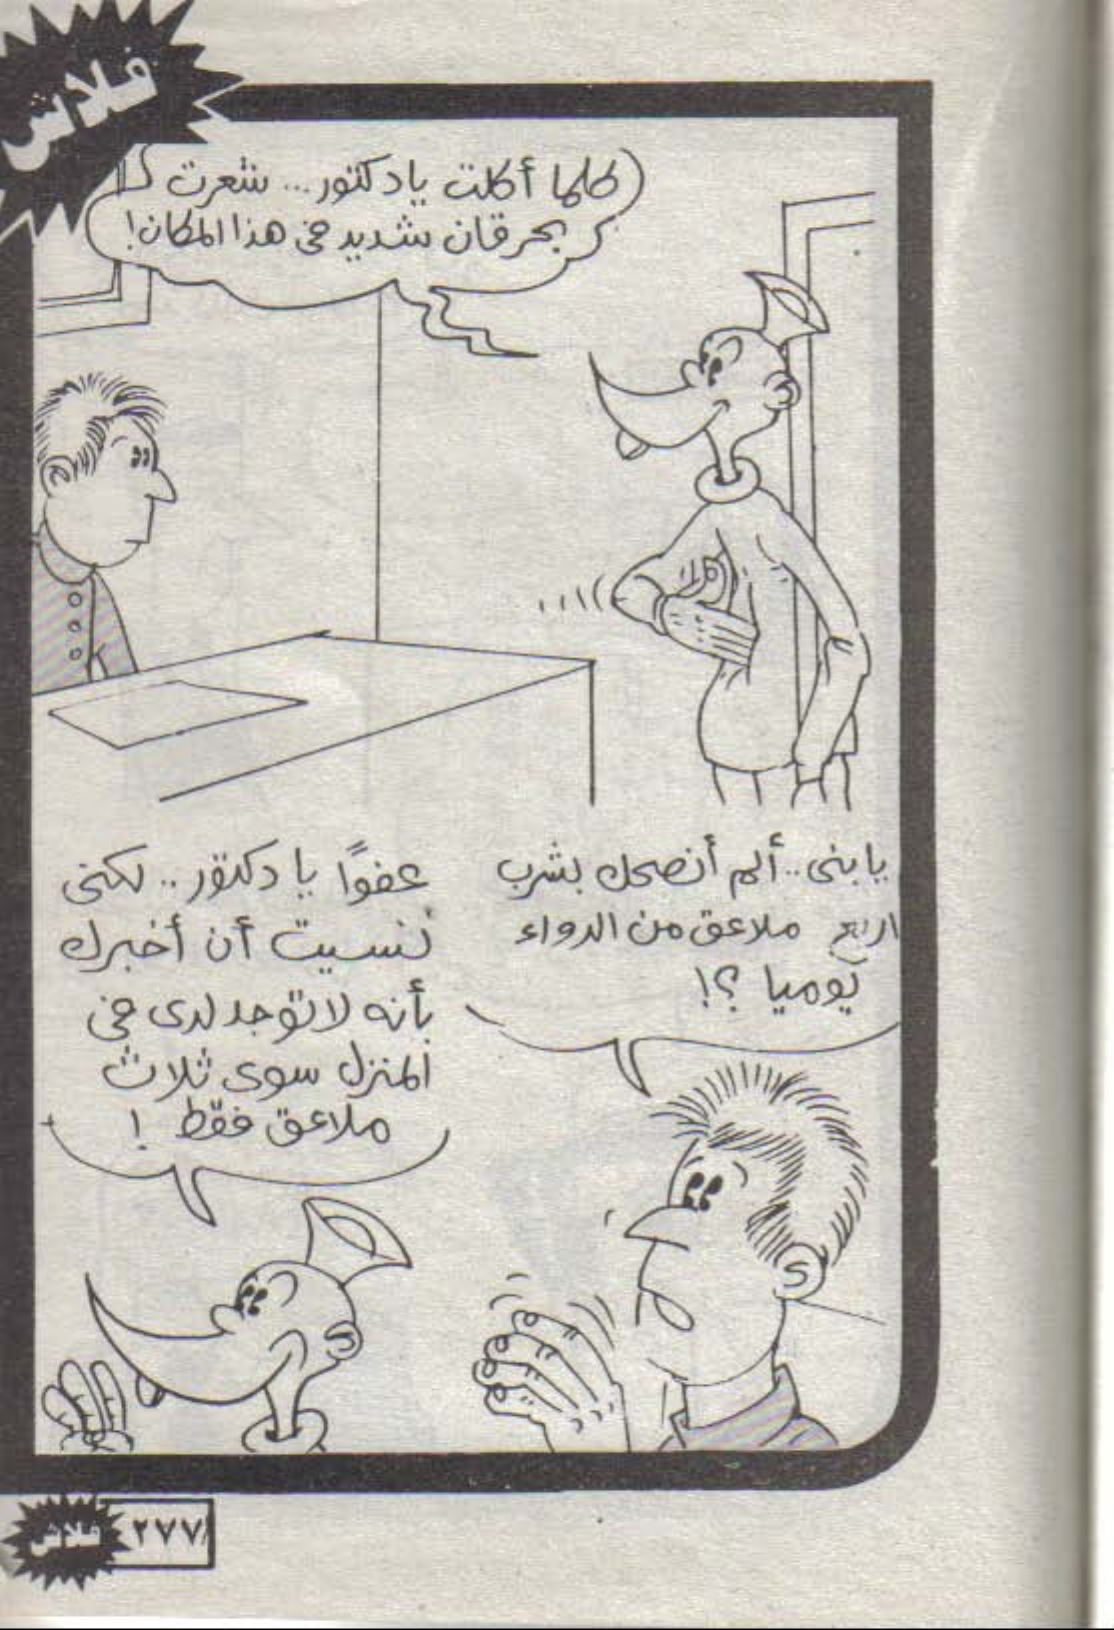 فلاش
كلما أكلت يا دكتور... شعرت
بحرقان شديد فى هذا المكان!
يا بنى.. ألم أنصحك بشرب
اربع ملاعق من الدواء
يوميا ؟!
عفوًا يا دكتور.. لكنى
نسيت أن أخبرك
بأنه لا توجد لدى فى
المنزل سوى ثلاث
ملاعق فقط !
فلاش ٢٧٧